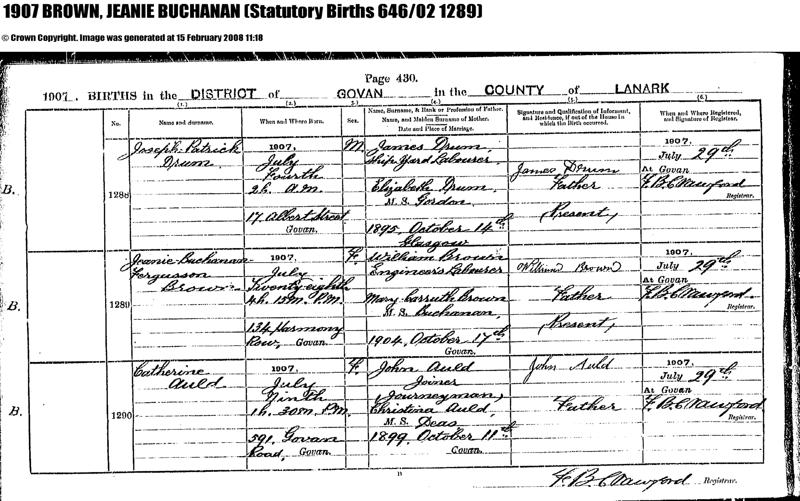 1907 BROWN, JEANIE BUCHANAN (Statutory Births 646/02 1289)
© Crown Copyright. Image was generated at 15 February 2008 11:18
Page 430.
1907. BIRTHS in the DISTRICT of GOVAN in the COUNTY of LANARK
(1.) (2.) 3.) (4.) (5.) (6.)
No.
Name and Surname.
When and Where Born.
Sex.
Name, Surname, & Rank or Profession of Father.
Name, and Maiden Surname of Mother.
Date and Place of Marriage.
Signature and Qualification of Informant,
and Residence, if out of the House in
which the Birth occurred.
When and Where Registered,
and Signature of Registrar.
B.
1288
Joseph Patrick
Drum
1907,
July
Fourth
2h. A.M.
17, Albert Street
Govan.
M.
James Drum,
Ship Yard Labourer
Elizabeth Drum,
M.S. Gordon,
1895, October 14th
Glasgow
James Drum
Father
Present,
1907,
July 29th
At Govan
F. B. Crawford
Registrar.
B.
1289
Jeanie Buchanan
Fergusson
Brown
1907.
July
Twenty eighth
4h. 15m. P.M.
134, Harmony
Row, Govan.
F.
William Brown
Engineer's Labourer
Mary Carruth Brown
M.S. Buchanan,
1904, October 17th
Govan.
William Brown
Father
Present,
1907.
July 29th
At Govan
F. B. Crawford
Registrar.
B.
1290
Catherine
Auld
1907.
July
Ninth
1h. 30m. P.M.
591, Govan
Road, Govan.
F.
John Auld
Joiner
(Journeyman)
Christina Auld,
M.S. Deas
1899, October 11th
Govan.
John Auld
Father
1907.
July 29th
At Govan
F. B. Crawford
Registrar.
F. B. Crawford Registrar.